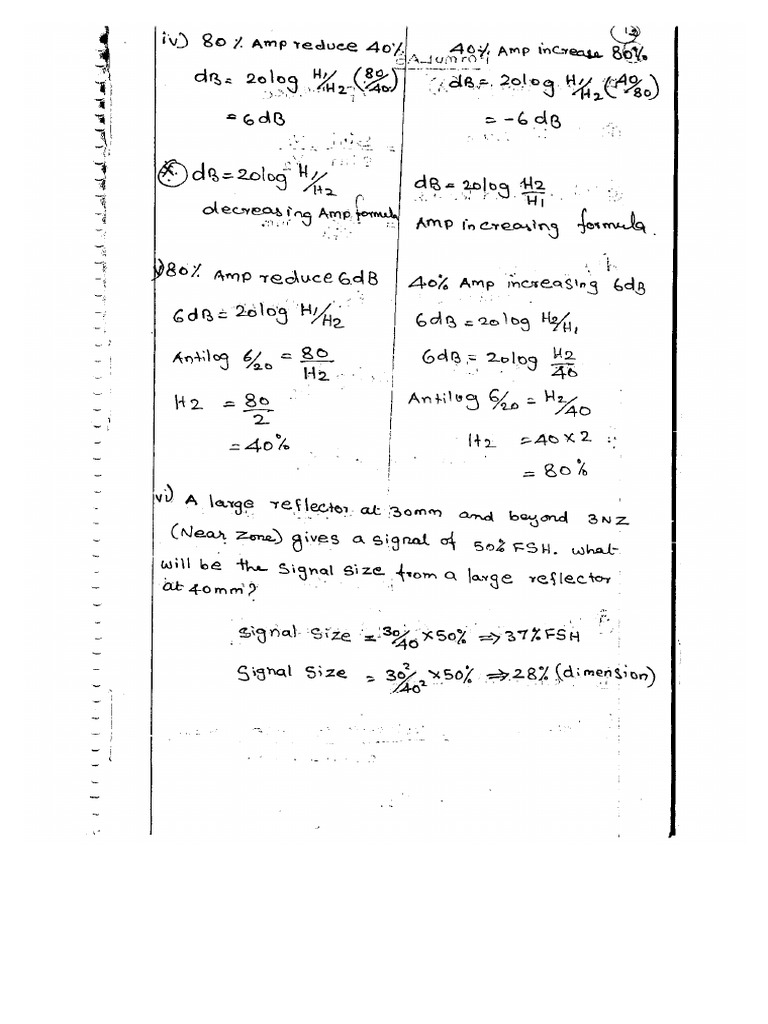 13
iv) 80% Amp reduce 40%
dB = 20log H1/H2 (80/40)
= 6dB
40% Amp increase 80%
dB = 20log H1/H2 (40/80)
= -6 dB
* dB = 20log H1/H2
decreasing Amp formula
dB = 20log H2/H1
Amp increasing formula.
v) 80% Amp reduce 6dB
6dB = 20log H1/H2
Antilog 6/20 = 80/H2
H2 = 80/2
= 40%
40% Amp increasing 6dB
6dB = 20log H2/H1
6dB = 20log H2/40
Antilog 6/20 = H2/40
H2 = 40 × 2
= 80%
vi) A large reflector at 30mm and beyond 3NZ
(Near Zone) gives a signal of 50% FSH. what
will be the signal size from a large reflector
at 40mm?
Signal Size = 30/40 × 50% ⇒ 37% FSH
Signal Size = 30²/40² × 50% ⇒ 28% (dimension)